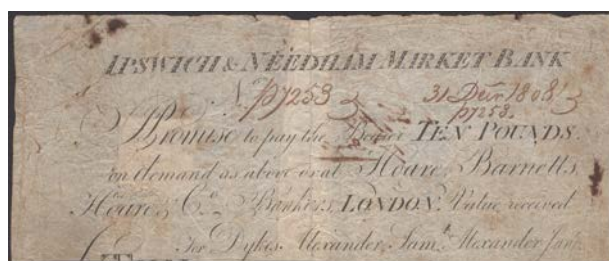 IPSWICH & NEEDHAM MARKET BANK
No P7253 31 Decr 1808
P7253.
I Promise to pay the Bearer TEN POUNDS
on demand as above or at Hoare, Barnetts,
Hoare, & Co. Bankers, LONDON. Value received
For Dykes Alexander, Saml. Alexander Junr.